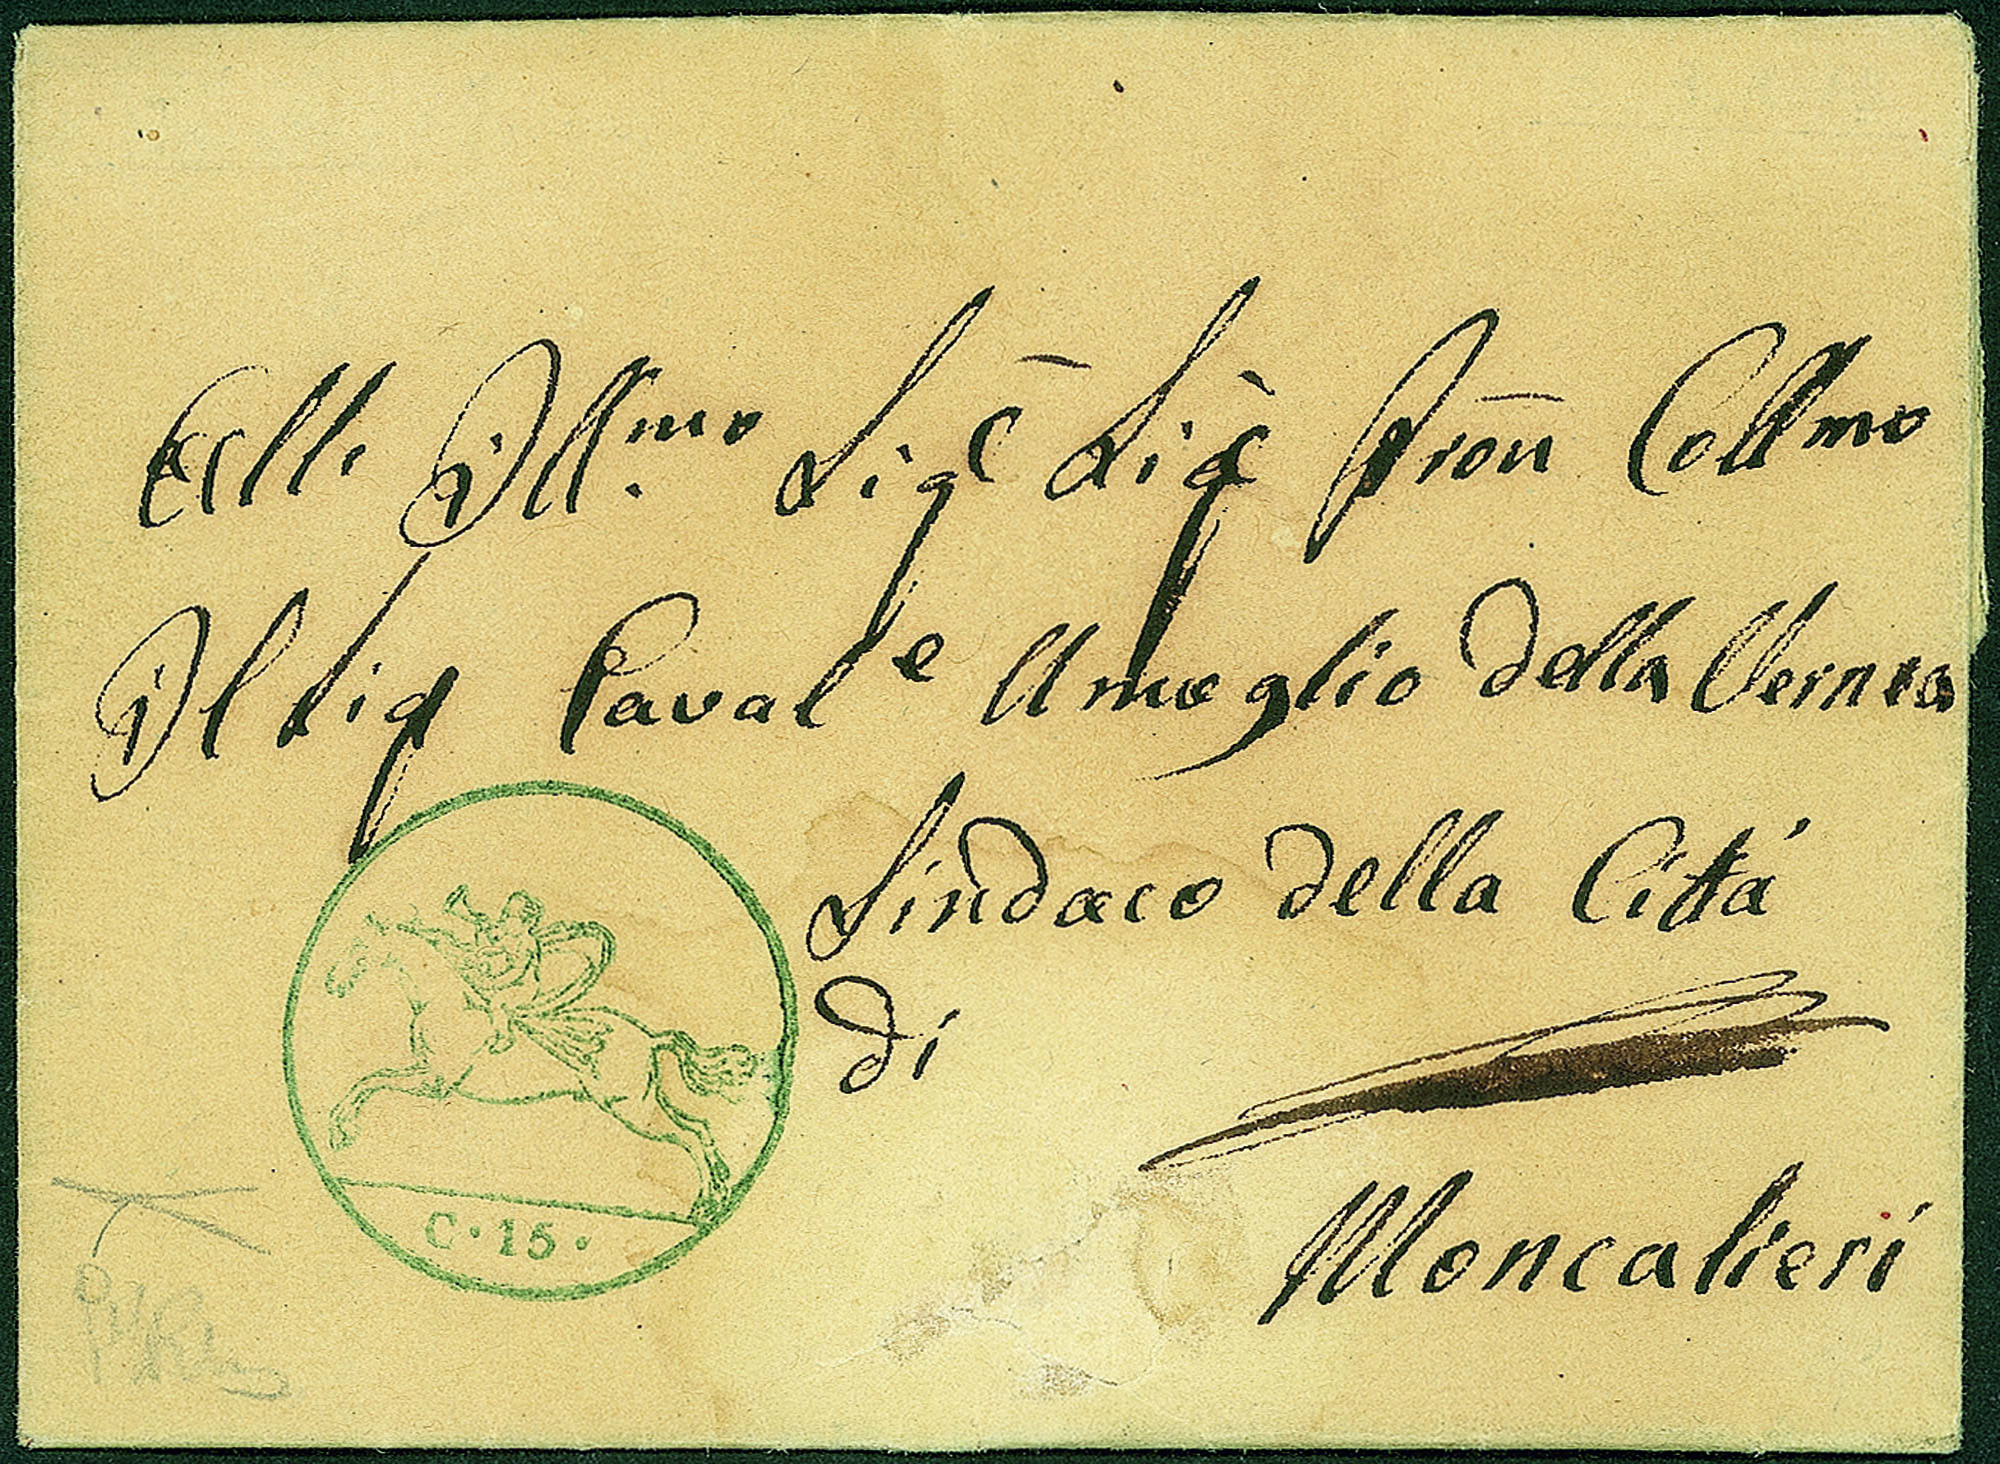 All Ill.mo Sigr Sigr Pron Coll.mo
Il Sig Caval.e Amoglio della Vernea
Sindaco della Cittá
di
Moncalieri
C · 15 ·